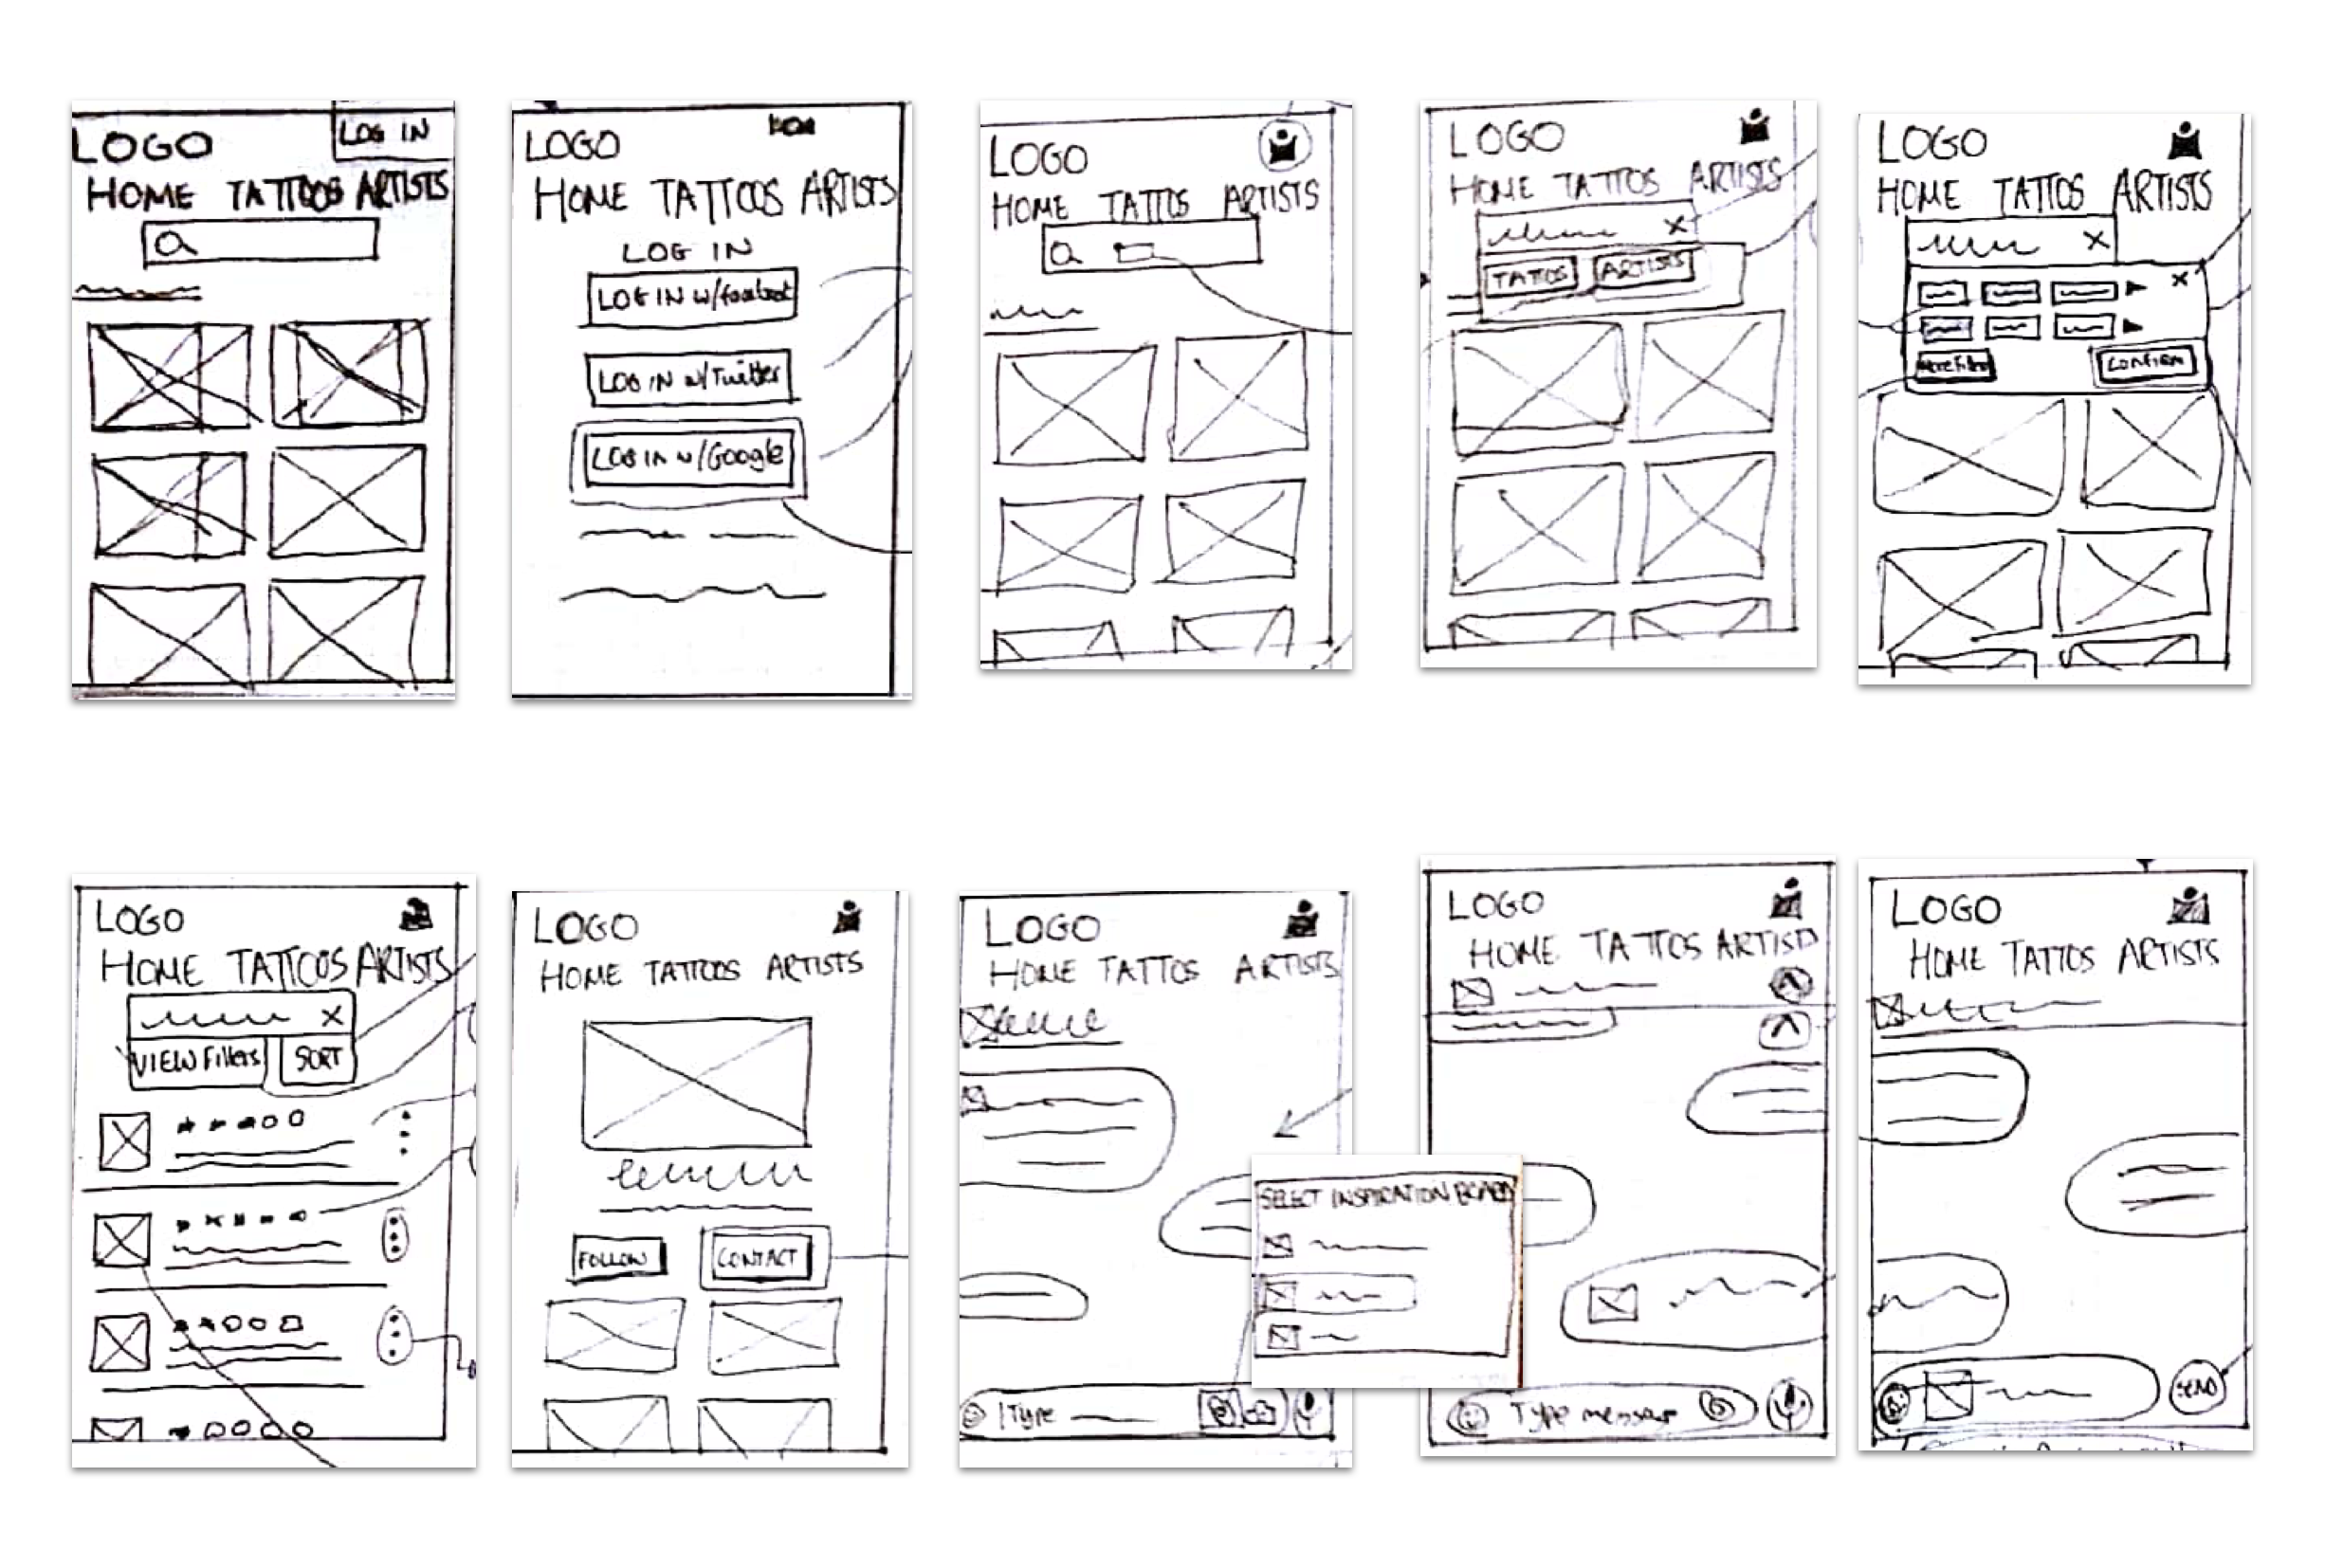 LOGO
LOG IN
HOME TATTOOS ARTISTS
LOGO
HOME TATTOOS ARTISTS
LOG IN
LOG IN w/facebook
LOG IN w/Twitter
LOG IN w/Google
LOGO
HOME TATTOS ARTISTS
LOGO
HOME TATTOS ARTISTS
X
TATTOS ARTISTS
LOGO
HOME TATTOS ARTISTS
X
X
More Filters
CONFIRM
LOGO
HOME TATTOOS ARTISTS
X
VIEW Filters SORT
LOGO
HOME TATTOOS ARTISTS
FOLLOW CONTACT
LOGO
HOME TATTOS ARTISTS
Type
SELECT INSPIRATION BOARD
LOGO
HOME TATTOS ARTIST
Type message
LOGO
HOME TATTOS ARTISTS
SEND